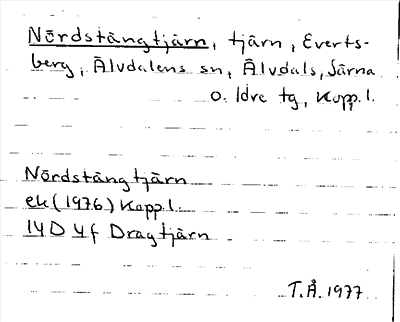 Nördstängtjärn, tjärn, Everts-
berg, Älvdalens sn, Älvdals, Särna
o. Idre tg, Kopp. l.
Nördstängtjärn
ek (1976) Kopp l.
14D 4f Dragtjärn
T.Å. 1977